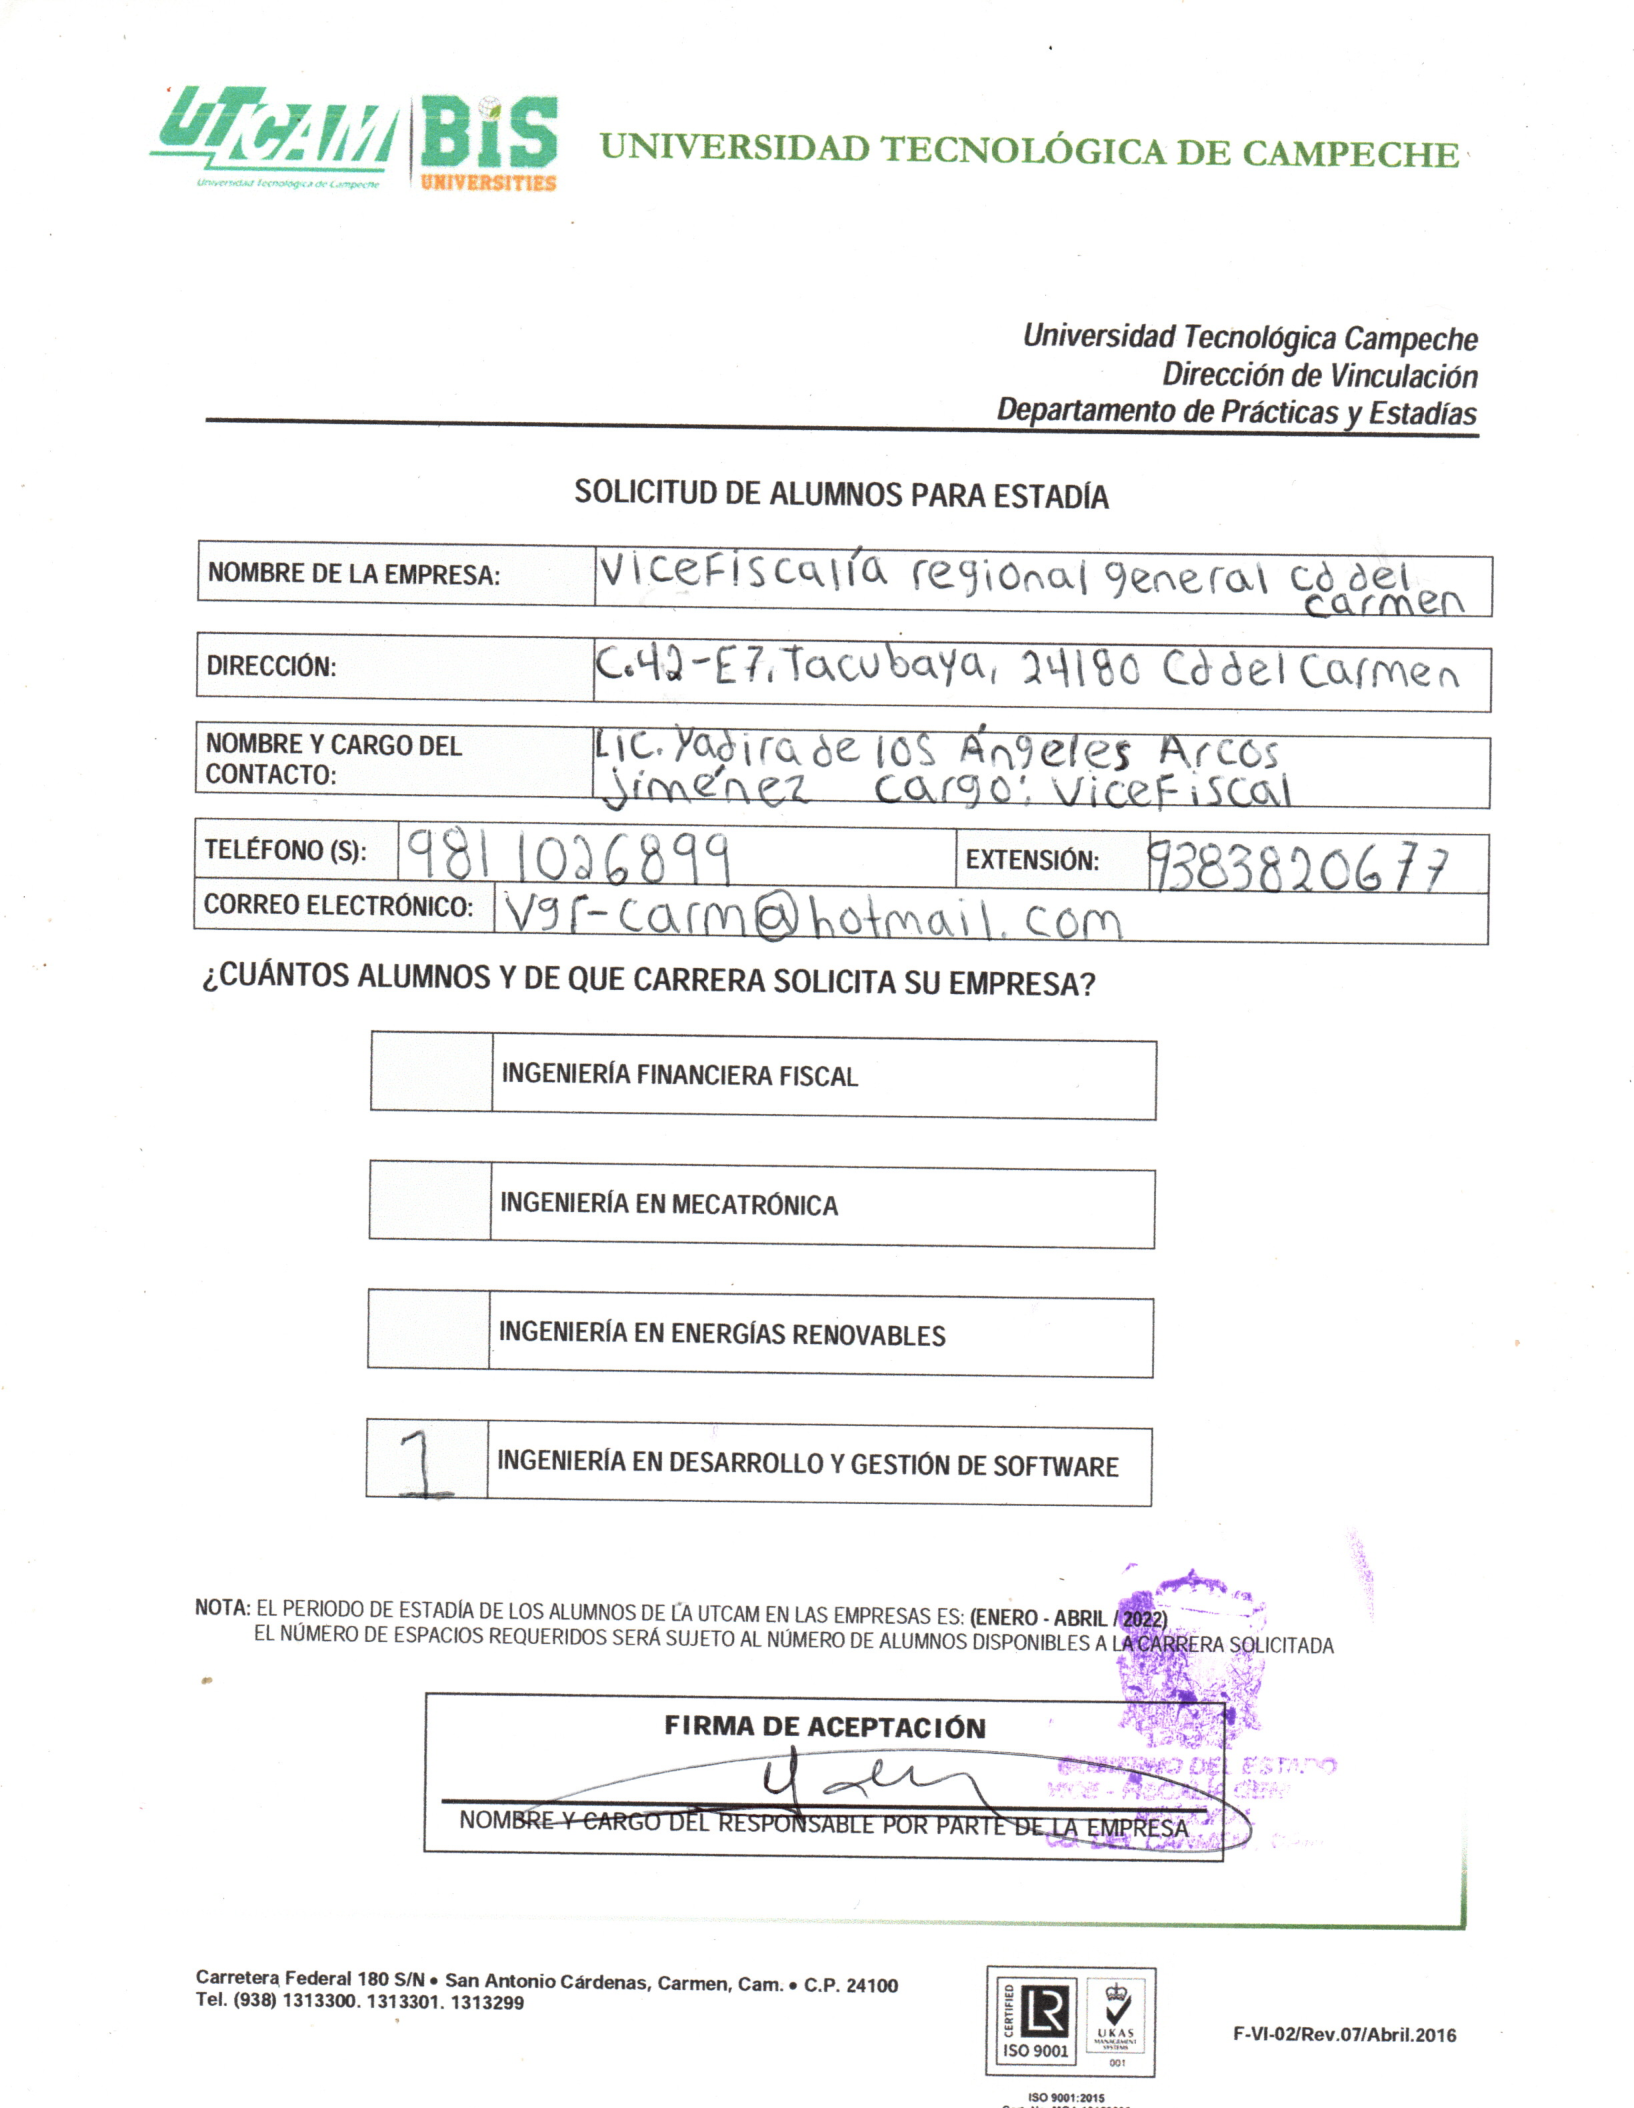 UTCAM BiS UNIVERSIDAD TECNOLÓGICA DE CAMPECHE
Universidad Tecnológica de Campeche UNIVERSITIES
Universidad Tecnológica Campeche
Dirección de Vinculación
Departamento de Prácticas y Estadías
SOLICITUD DE ALUMNOS PARA ESTADÍA
NOMBRE DE LA EMPRESA: Vicefiscalía regional general cd del
carmen
DIRECCIÓN: C.42-E7, Tacubaya, 24180 Cd del Carmen
NOMBRE Y CARGO DEL Lic. Yadira de los Ángeles Arcos
CONTACTO: Jiménez cargo: Vicefiscal
TELÉFONO (S): 981 1026899 EXTENSIÓN: 9383820677
CORREO ELECTRÓNICO: Vgr-carm@hotmail.com
¿CUÁNTOS ALUMNOS Y DE QUE CARRERA SOLICITA SU EMPRESA?
INGENIERÍA FINANCIERA FISCAL
INGENIERÍA EN MECATRÓNICA
INGENIERÍA EN ENERGÍAS RENOVABLES
1 INGENIERÍA EN DESARROLLO Y GESTIÓN DE SOFTWARE
NOTA: EL PERIODO DE ESTADÍA DE LOS ALUMNOS DE LA UTCAM EN LAS EMPRESAS ES: (ENERO - ABRIL / 2022)
EL NÚMERO DE ESPACIOS REQUERIDOS SERÁ SUJETO AL NÚMERO DE ALUMNOS DISPONIBLES A LA CARRERA SOLICITADA
FIRMA DE ACEPTACIÓN
DEL ESTADO
NOMBRE Y CARGO DEL RESPONSABLE POR PARTE DE LA EMPRESA
Carretera Federal 180 S/N • San Antonio Cárdenas, Carmen, Cam. • C.P. 24100
Tel. (938) 1313300. 1313301. 1313299
CERTIFIED
LR
ISO 9001
UKAS
MANAGEMENT
SYSTEMS
001
F-VI-02/Rev.07/Abril.2016
ISO 9001:2015